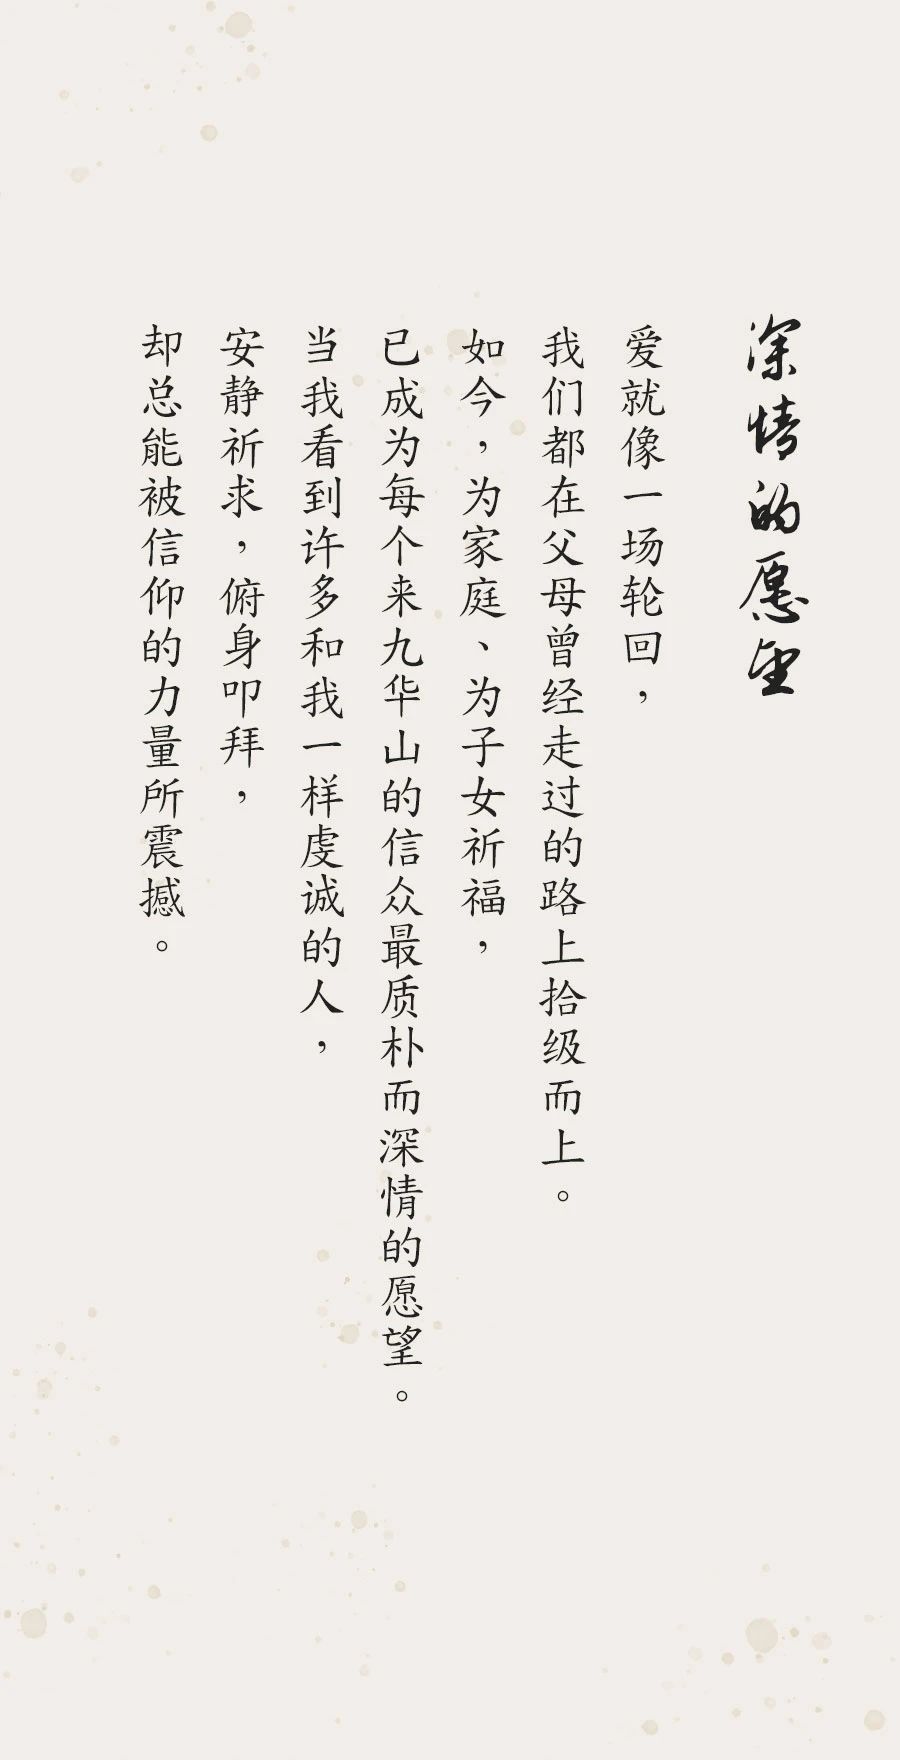 深情的愿望
爱就像一场轮回，
我们都在父母曾经走过的路上拾级而上。
如今，为家庭、为子女祈福，
已成为每个来九华山的信众最质朴而深情的愿望。
当我看到许多和我一样虔诚的人，
安静祈求，俯身叩拜，
却总能被信仰的力量所震撼。